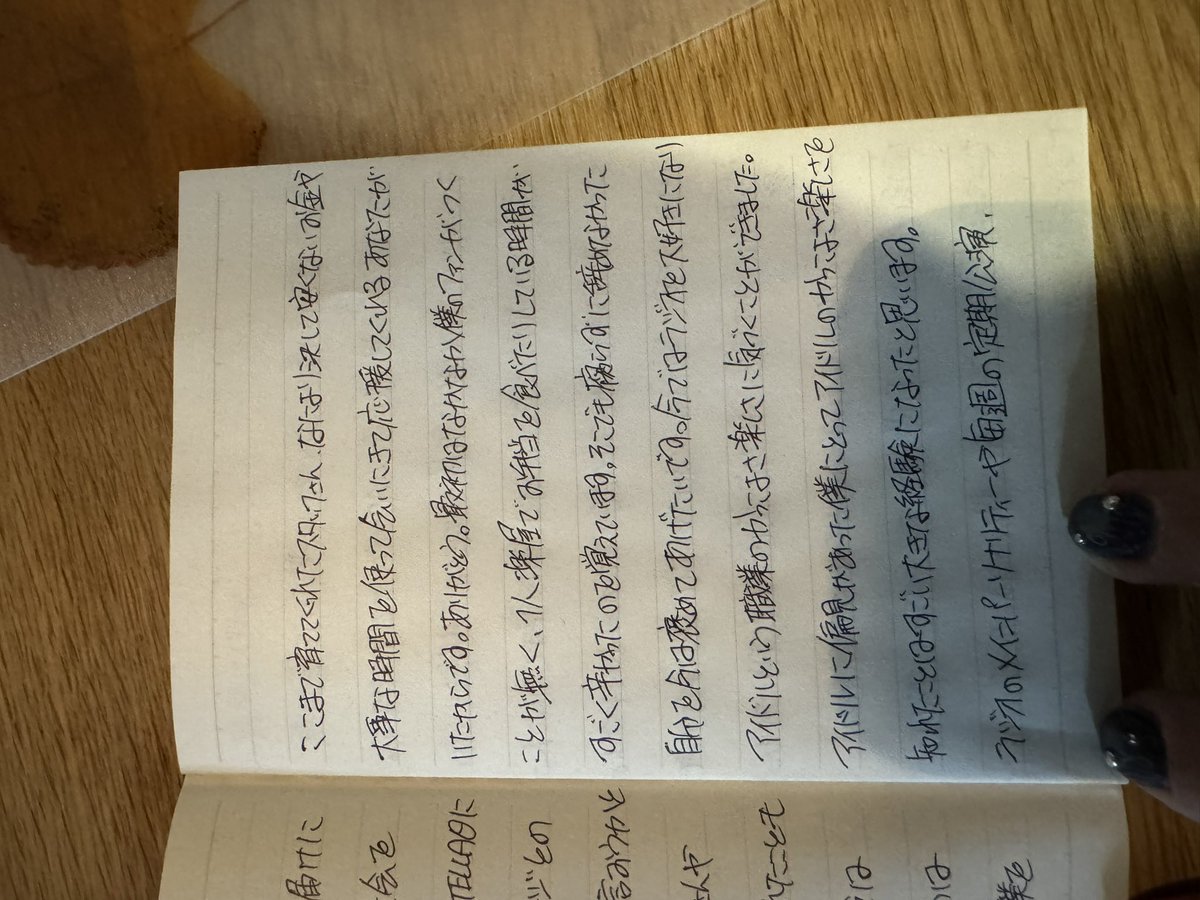 届けに
会を
ジとの
言おうかと
んや
れたことも
は
は
僕を
ここまで育ててくれたスタッフさん、なにより決して安くないお金や
大事な時間を使って会いにきて応援してくれるあなたが
いたからです。ありがとう。最初はなかなか僕のファンがつく
ことが無く、1人楽屋でお弁当を食べたりしている時間が
すごく辛かったのを覚えています。そこでも腐らずに辞めなかった
自分を今は褒めてあげたいです。今ではラジオも大好きになり
アイドルという職業のかっこよさ楽しさに気づくことができました。
アイドルに偏見があった僕にとってアイドルのかっこよさ楽しさを
知れたことはすごい大きな経験になったと思います。
ラジオのメインパーソナリティーや毎週の定期公演、